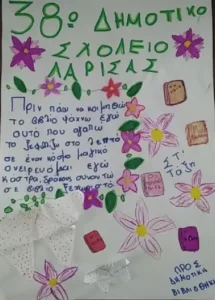 38ο ΔΗΜΟΤΙΚΟ
ΣΧΟΛΕΙΟ
ΛΑΡΙΣΑΣ
Πριν πάω να κοιμηθώ
το βιβλίο ψάχνω εγώ
αυτό που αγαπώ
το ξεφυλλίζω στο λεπτό
σε έναν κόσμο μαγικό
ονειρεύομαι εγώ
κάστρα, δράκους συναντώ
σε βιβλίο ξεχωριστό
ΣΤ'
Τάξη
ΠΡΟΣ
ΔΗΜΟΤΙΚΗ
ΒΙΒΛΙΟΘΗΚΗ